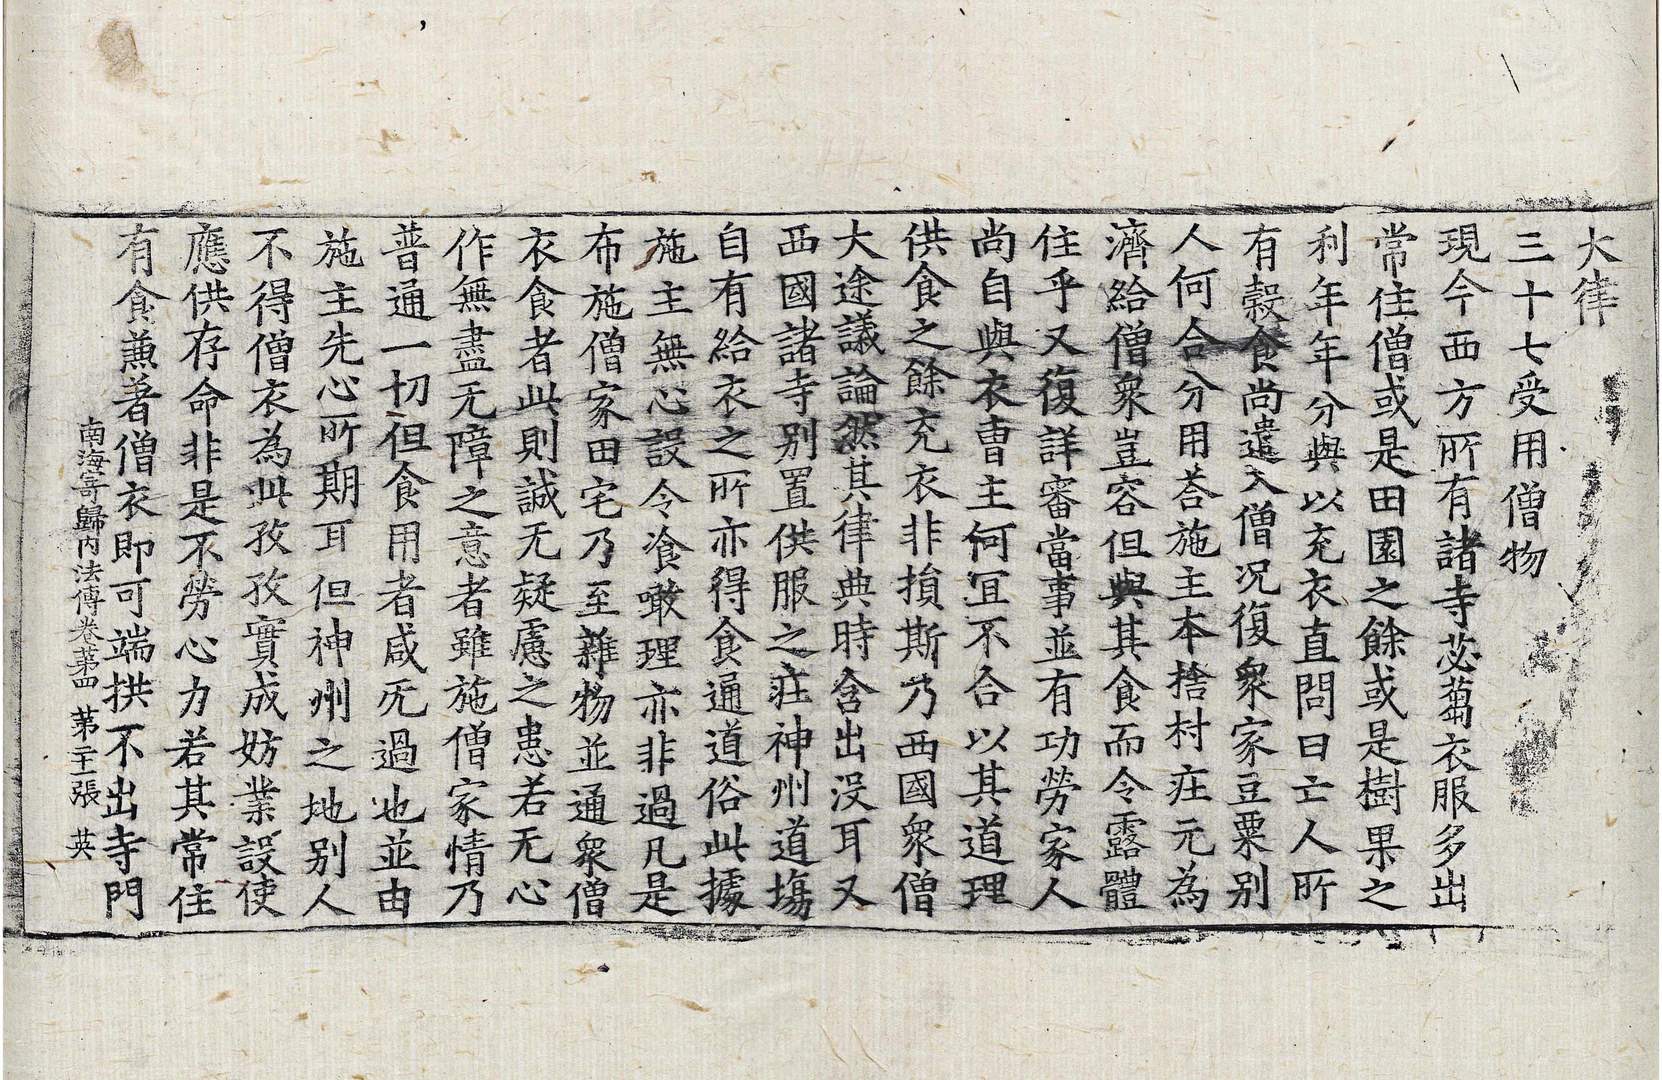 大律
三十七受用僧物
現今西方所有諸寺苾蒭衣服多出
常住僧或是田園之餘或是樹果之
利年年分與以充衣直問曰亡人所
有穀食尚遣入僧况復衆家豆粟別
人何合分用荅施主本捨村庄元為
濟給僧衆豈容但與其食而令露體
住乎又復詳審當事並有功勞家人
尚自與衣曹主何冝不合以其道理
供食之餘充衣非損斯乃西國衆僧
大途議論然其律典時含出没耳又
西國諸寺別置供服之莊神州道塲
自有給衣之所亦得食通道俗此據
施主無心設令飡噉理亦非過凡是
布施僧家田宅乃至雜物並通衆僧
衣食者此則誠无疑慮之患若无心
作無盡无障之意者雖施僧家情乃
普通一切但食用者咸旡過也並由
施主先心所期耳但神州之地別人
不得僧衣為此孜孜實成妨業設使
應供存命非是不勞心力若其常住
有食兼著僧衣即可端拱不出寺門
南海寄歸內法傳卷苐四 苐二十一張 英